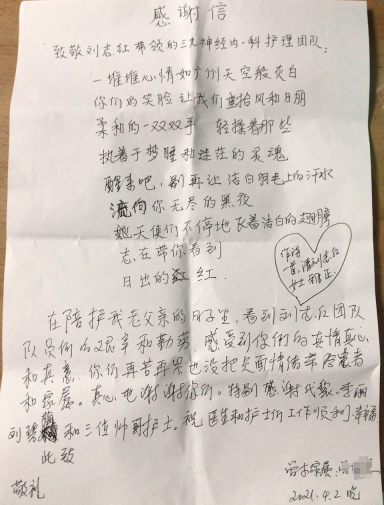 感谢信
致敬刘志红带领的三九神经内一科护理团队:
一堆堆心情如广州天空般灰白
你们的笑脸让我们重拾风和日丽
柔和的一双双手 轻揉着那些
执着于梦睡和迷茫的灵魂
醒来吧,别再让洁白羽毛上的汗水
流向你无尽的黑夜
她天使们不停地长着洁白的翅膀
志在带你看到
日出的红红.
作诗一首,请刘志红女士雅正
在陪护我老父亲的日子里,看到刘志红团队
队员们的艰辛和勤劳 感受到你们的真情真心
和真意.你们再苦再累也没把负面情绪带给患者
和家属。真心地谢谢你们。特别感谢
和三位帅哥护士。祝医生和护士们工作顺利!幸福
此致
敬礼
2021.4.2